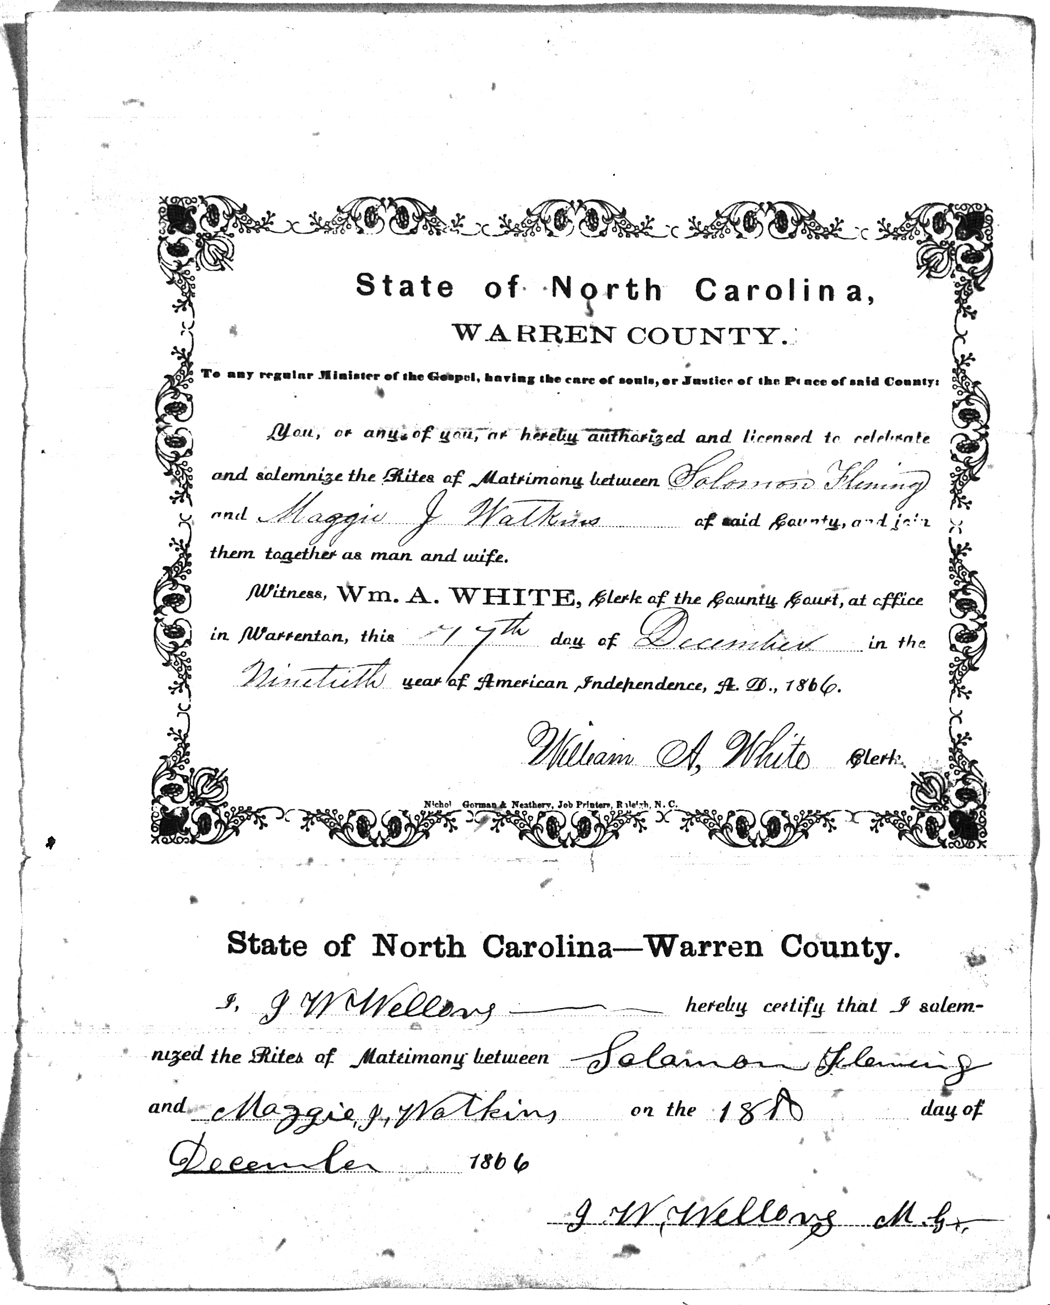 State of North Carolina,
WARREN COUNTY.
To any regular Minister of the Gospel, having the care of souls, or Justice of the Peace of said County:
You, or any of you, are hereby authorized and licensed to celebrate
and solemnize the Rites of Matrimony between Solomon Fleming
and Maggie J Watkins of said County, and join
them together as man and wife.
Witness, Wm. A. WHITE, Clerk of the County Court, at office
in Warrenton, this 17th day of December in the
Ninetieth year of American Independence, A. D., 1866.
William A, White Clerk.
Nichol Gorman & Neathery, Job Printers, Raleigh, N. C.
State of North Carolina—Warren County.
I, J W Wellons hereby certify that I solem-
nized the Rites of Matrimony between Solamon Fleming
and Maggie, J, Watkins on the 18th day of
December 1866
J. W, Wellons M. G.